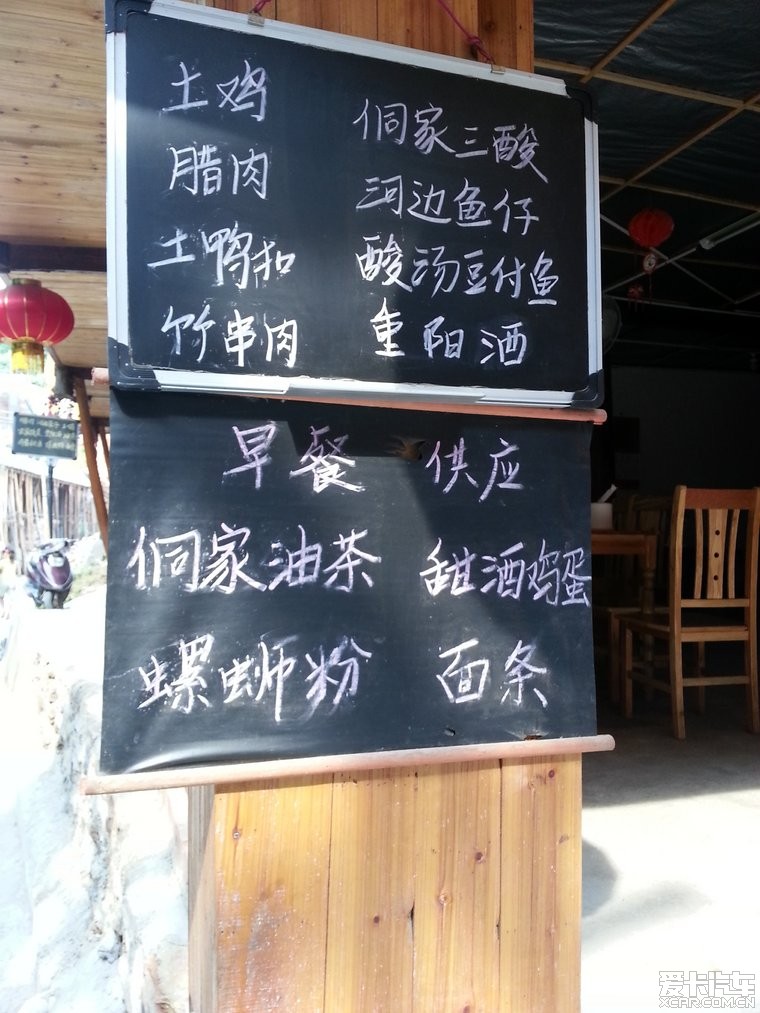 土鸡
腊肉
土鸭扣
竹串肉
侗家三酸
河边鱼仔
酸汤豆付鱼
重阳酒
早餐 供应
侗家油茶 甜酒鸡蛋
螺蛳粉 面条
爱卡汽车
XCAR.COM.CN